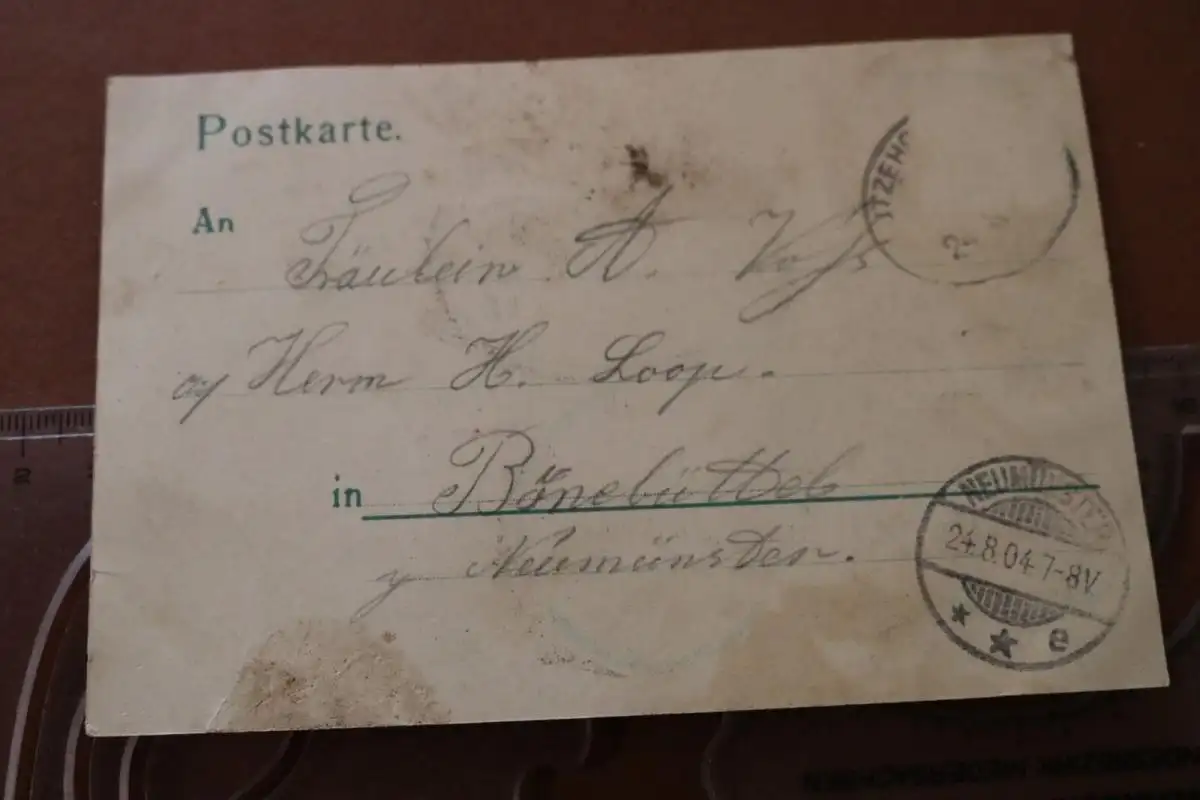 Postkarte.
ITZEHO
2
An
Fräulein A. Voß
Herrn H. Loop.
in Bönebüttel
Neumünster.
NEUMÜNSTER
24.8.04 7-8V
* * e